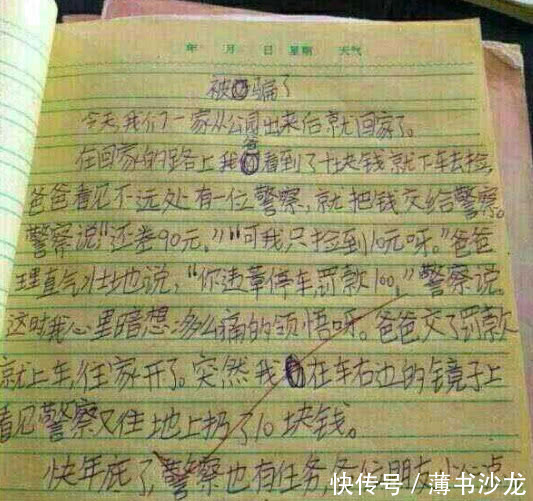 年 月 日 星期 天气
被骗了
今天,我们一家从公园出来后就回家了。
在回家的路上我爸看到了十块钱就下车去捡,
爸爸看见不远处有一位警察,就把钱交给警察。
警察说“还差90元,”“可我只捡到10元呀。”爸爸
理直气壮地说,“你违章停车罚款100,”警察说。
这时我心里暗想:多么痛的领悟呀。爸爸交了罚款
就上车,往家开了。突然我在车右边的镜子上
看见警察又往地上扔了10块钱。
快年底了,警察也有任务,各位朋友小心点
快传号/薄书沙龙